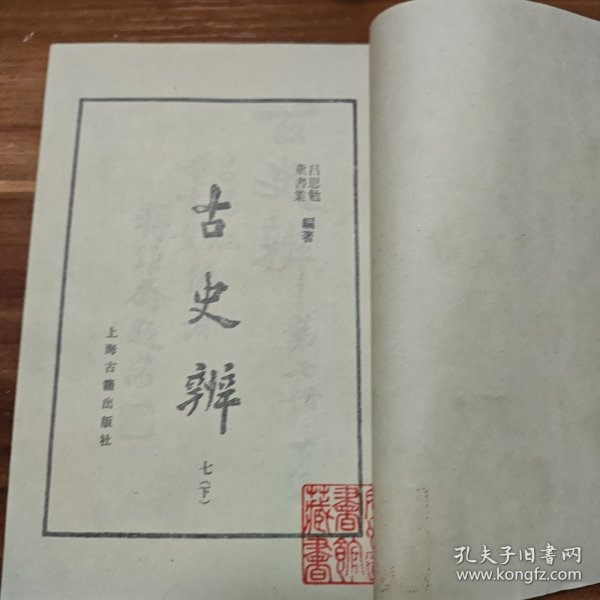 呂思勉
童書業
編著
古史辨
七(下)
上海古籍出版社
書館
藏書
孔夫子旧書网
www.kongfz.com